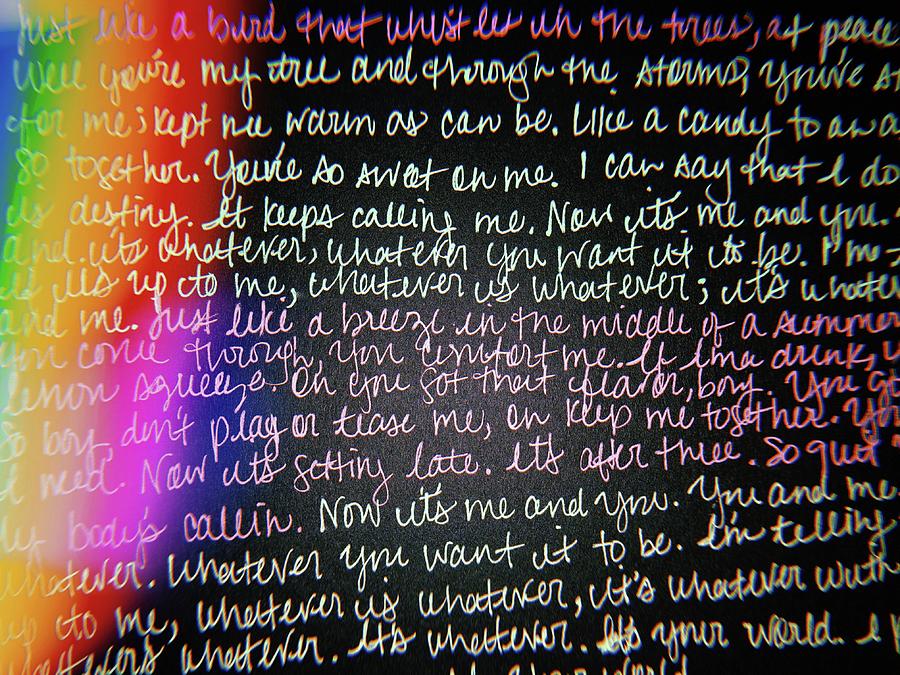 Just like a bird that whistles in the trees, at peace
Well you're my tree and through the storms, you've
for me; kept me warm as can be. Like a candy to
so together. You're so sweet on me. I can say that I do
is destiny. It keeps calling me. Now it's me and you.
and it's whatever, whatever you want it to be. I'm
it's up to me, whatever is whatever; it's
and me. Just like a breeze in the middle of a summer
you come through, you comfort me. If I'm a drink,
lemon squeeze. Oh you got that flavor, boy. You
So boy, don't play or tease me, on keep me together.
I need. Now it's getting late. It's after three. So quit
My body's callin. Now it's me and you. You and me.
whatever. Whatever you want it to be. I'm telling
up to me, whatever is whatever, it's whatever with
whatever. It's whatever. It's your world. I